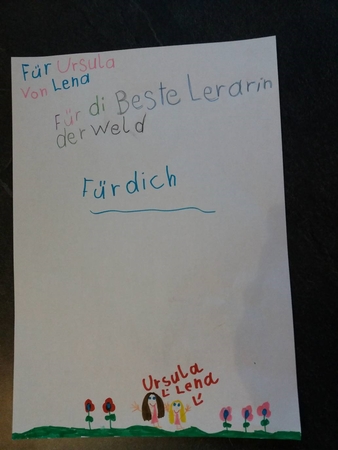 Für Ursula
Von Lena
Für di Beste Lerarin
der weld
Für dich
Ursula
Lena